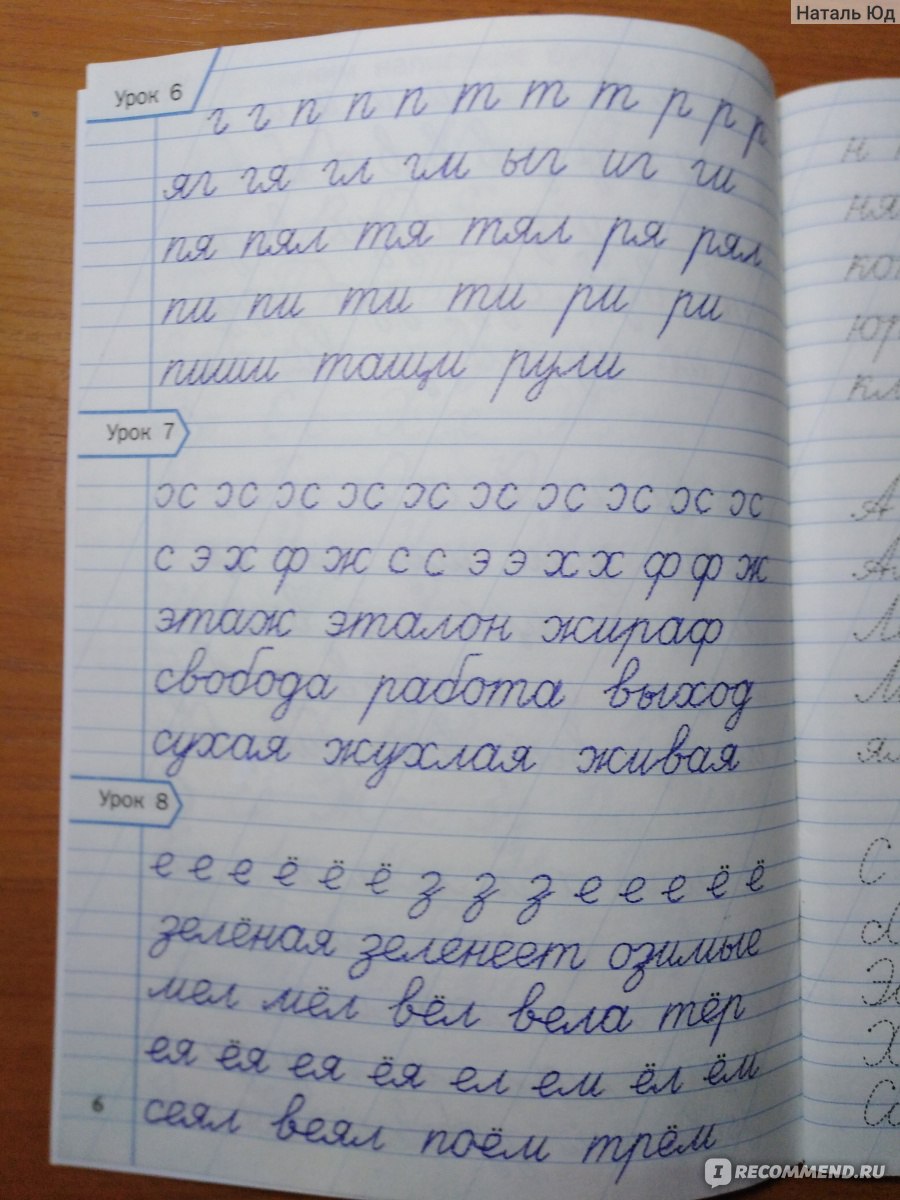 Наталь Юд
Урок 6
г г п п п т т т р р р
яг гя гл гм ыг иг ги
пя пял тя тял ря рял
пи пи ти ти ри ри
пиши тащи рули
Урок 7
эс эс эс эс эс эс эс эс эс эс
с э х ф ж с с э э х х ф ф ж
этаж эталон жираф
свобода работа выход
сухая жухлая живая
Урок 8
е е е ё ё ё з з з е е е ё ё
зелёная зеленеет озимые
мел мёл вёл вела тёр
ея ёя ея ёя ел ем ёл ём
сеял веял поём трём
6
н
ня
юр
кл
А
С
Х
IRECOMMEND.RU